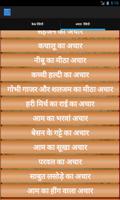 वेज रेसिपी
अचार रेसिपी
सहजन का अचार
कचालू का अचार
नीबू का मीठा अचार
कच्ची हल्दी का अचार
गोभी गाजर और शलजम का मीठा अचार
हरी मिर्च का राई का अचार
आम का भरवां अचार
बेसन के गट्टे का अचार
आम का सूखा अचार
परवल का अचार
साबुत लसोड़े का अचार
आम का हींग वाला अचार